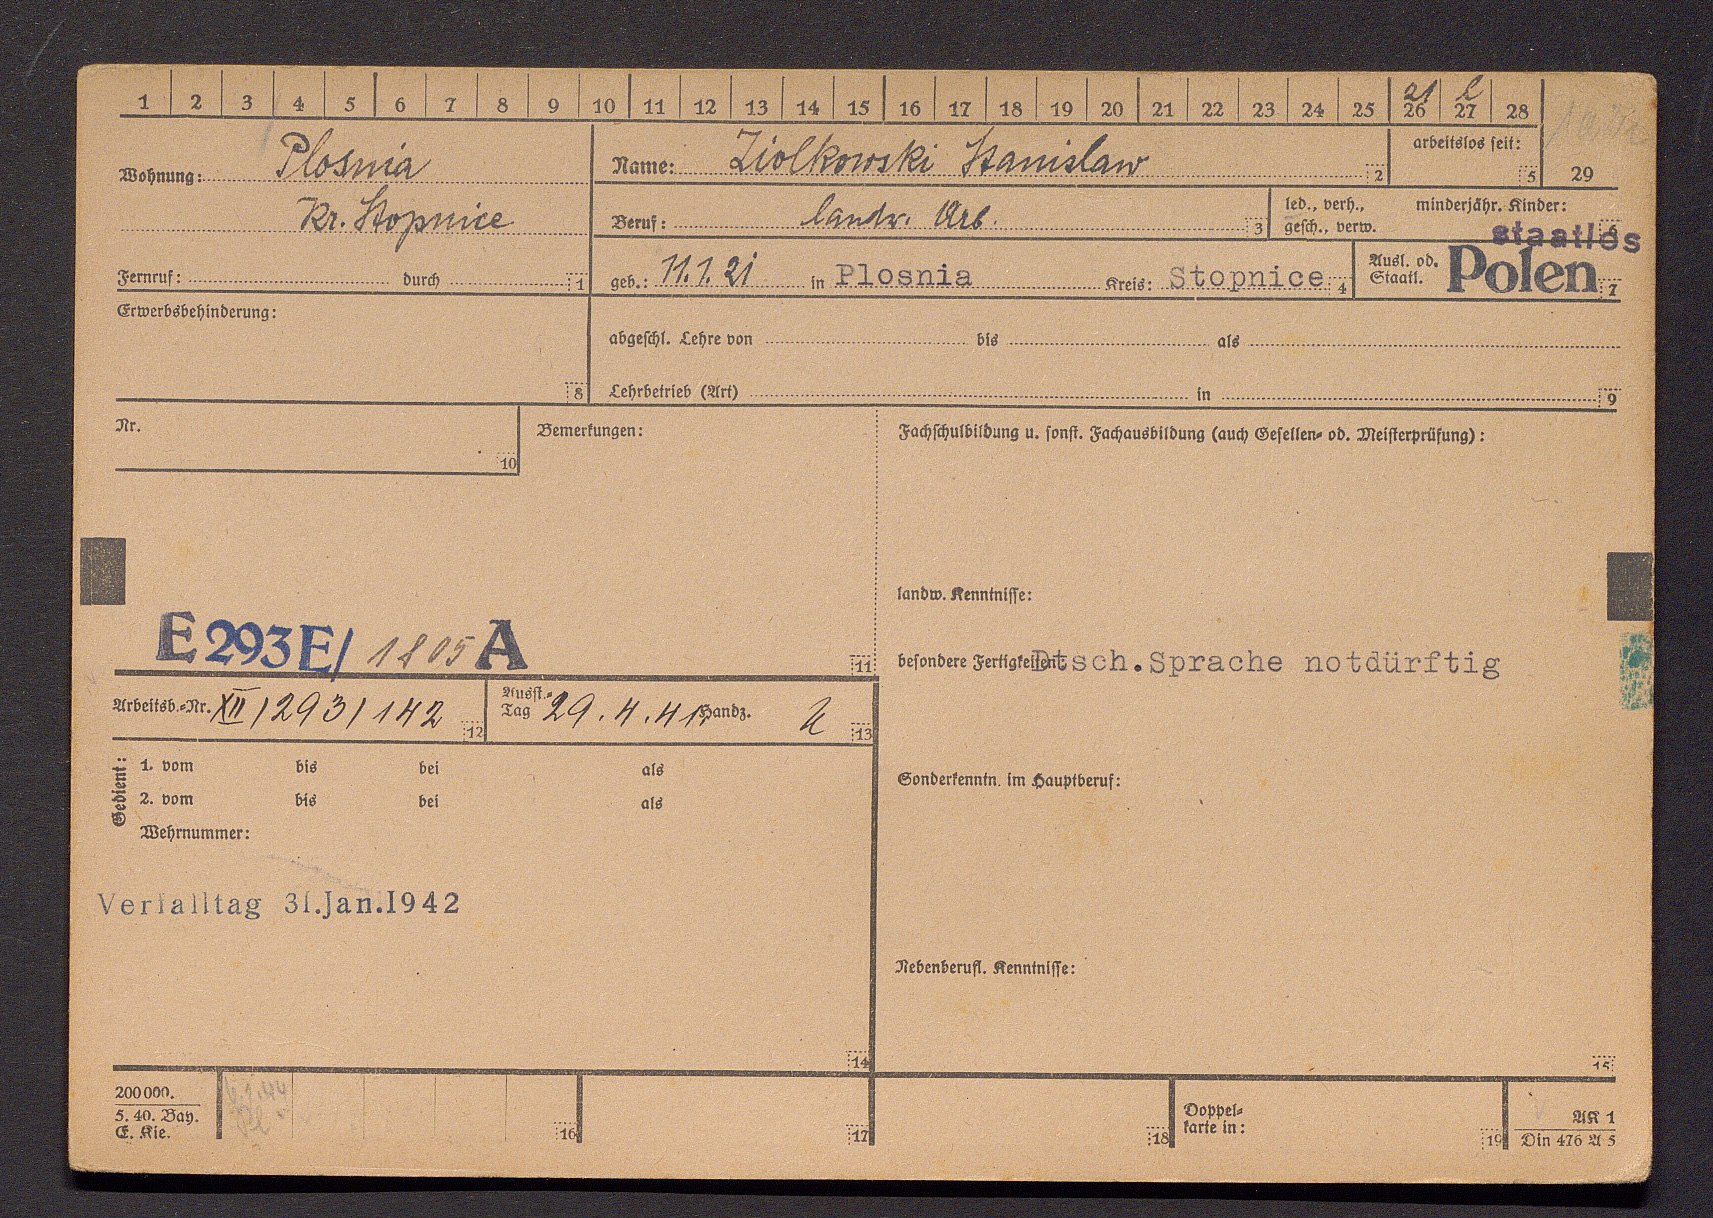 1 2 3 4 5 6 7 8 9 10 11 12 13 14 15 16 17 18 19 20 21 22 23 24 25 26 27 28
21
Wohnung: Plosnia
Kr. Stopnice
Fernruf: durch 1
Name: Ziolkowski Stanislaw 2
arbeitslos seit: 5
29
Beruf: landw. Arb. 3
led., verh., minderjähr. Kinder:
gesch., verw. 6
staatlos
geb.: 11.1.21 in Plosnia Kreis: Stopnice 4
Ausl. od. Staatl. Polen 7
Erwerbsbehinderung:
8
abgeschl. Lehre von bis als
Lehrbetrieb (Art) in 9
Nr.
10
Bemerkungen:
Fachschulbildung u. sonst. Fachausbildung (auch Gesellen- od. Meisterprüfung):
landw. Kenntnisse:
E 293 E/ 1805 A
11
besondere Fertigkeiten: Dtsch. Sprache notdürftig
Arbeitsb.-Nr. XII/293/142 12
Ausst.-Tag 29.4.41. Handz. 13
Gedient:
1. vom bis bei als
2. vom bis bei als
Wehrnummer:
Sonderkenntn. im Hauptberuf:
Verfalltag 31.Jan.1942
Nebenberufl. Kenntnisse:
14
15
200000.
5. 40. Bay.
E. Kie.
16
17
18
Doppel-
karte in:
19
AK 1
Din 476 A 5